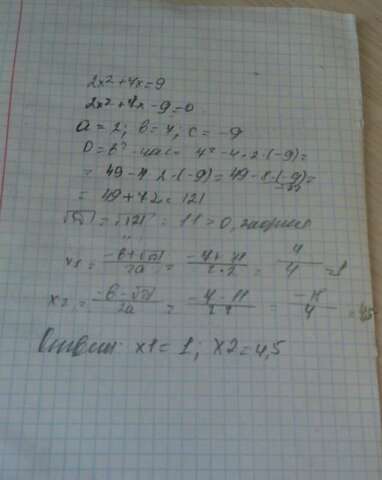 2x²+7x=9
2x²+7x-9=0
a=2; b=7, c=-9
D=b²-4ac= 7²-4·2·(-9)=
=49-4·2·(-9)=49-8·(-9)=
=49+72=121
√D=√121=11>0, 2 корня
x1=-b+√D/2a=-7+11/2·2=4/4=1
x2=-b-√D/2a=-7-11/2·2=-18/4=4,5
Ответ: x1=1; x2=4,5